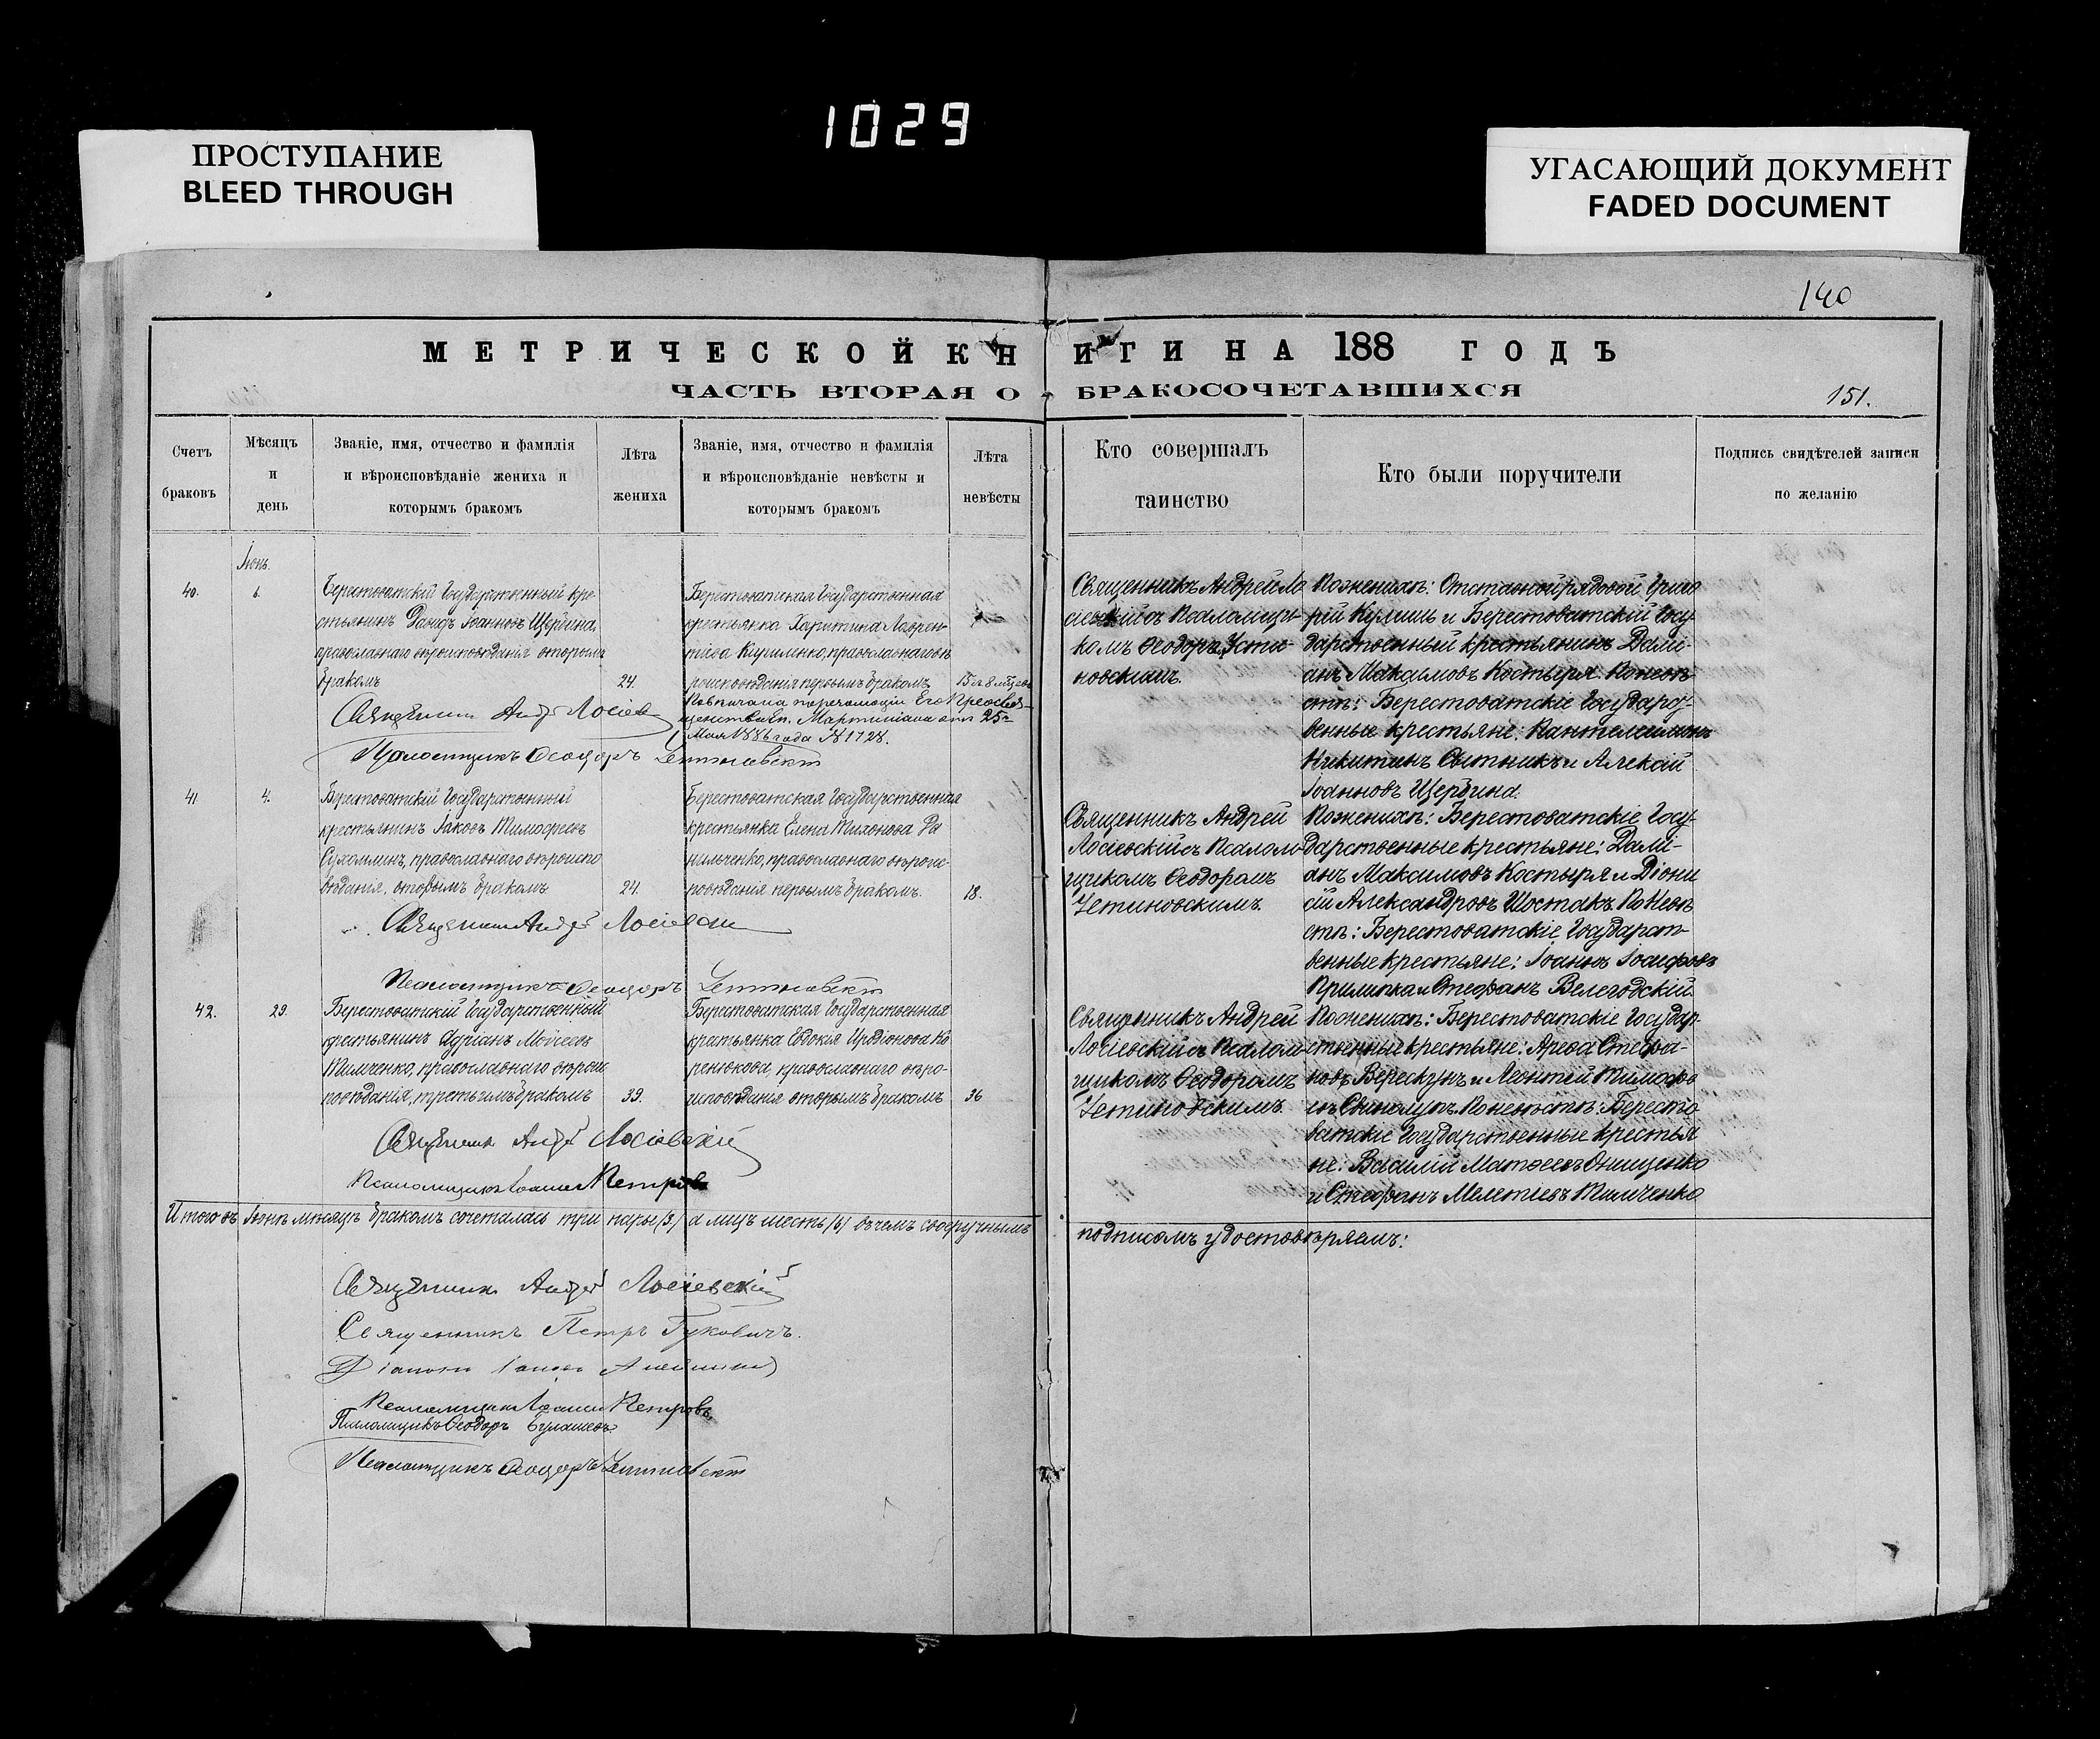 1029
ПРОСТУПАНИЕ
BLEED THROUGH
УГАСАЮЩИЙ ДОКУМЕНТ
FADED DOCUMENT
140
МЕТРИЧЕСКОЙ КНИГИ НА 188 ГОДЪ
ЧАСТЬ ВТОРАЯ О БРАКОСОЧЕТАВШИХСЯ
151.
Счетъ
браковъ
Мѣсяцъ
и
день
Званіе, имя, отчество и фамилія
и вѣроисповѣданіе жениха и
которымъ бракомъ
Лѣта
жениха
Званіе, имя, отчество и фамилія
и вѣроисповѣданіе невѣсты и
которымъ бракомъ
Лѣта
невѣсты
Кто совершалъ
таинство
Кто были поручители
Подпись свидѣтелей записи
по желанію
Іюнь
40.
Берестоватскій Государственный кре-
стьянинъ Давидъ Іоанновъ Щербина,
православнаго вѣроисповѣданія вторымъ
бракомъ
24.
Берестоватская Государственная
крестьянка Харитина Лаврен-
тіева Кириленко, православнаго вѣ
роисповѣданія первымъ бракомъ
15 л. 8 мѣцевъ
Повѣнчана Его Преосвя-
щенства Еп. Мартиніана отъ 25го
Мая 1886 года № 1728.
Священникъ Андрей Лосіевскій
Псаломщикъ Ѳеодоръ Устиновскій
Священникъ Андрей Ло
сіевскій съ Псаломщи-
комъ Ѳеодоромъ Усти-
новскимъ
По женихѣ: Отставной рядовой Григо
рій Кулишъ и Берестоватскій Госу-
дарственный крестьянинъ Далмі-
анъ Максимовъ Костыря. По невѣ
стѣ: Берестоватскіе Государст-
венные крестьяне: Пантелеимонъ
Никитинъ Сытникъ и Алексій
Іоанновъ Щербина.
41.
4.
Берестоватскій Государственный
крестьянинъ Іаковъ Тимофеевъ
Сухомлинъ, православнаго вѣроиспо
вѣданія, вторымъ бракомъ
24.
Берестоватская Государственная
крестьянка Елена Тихонова Да
нильченко, православнаго вѣроис-
повѣданія первымъ бракомъ.
18.
Священникъ Андрей Лосіевскій
Псаломщикъ Ѳеодоръ Устиновскій
Священникъ Андрей
Лосіевскій съ Псалом-
щикомъ Ѳеодоромъ
Устиновскимъ.
По женихѣ: Берестоватскіе Госу-
дарственные крестьяне: Далмі-
анъ Максимовъ Костыря и Діони
сій Александровъ Шостакъ. По невѣ
стѣ: Берестоватскіе Государст-
венные крестьяне: Іоаннъ Іосифовъ
Прилипка и Стефанъ Велегодскій
42.
29.
Берестоватскій Государственный
крестьянинъ Адріанъ Мойсеевъ
Тимченко, православнаго вѣроис
повѣданія, третьимъ бракомъ
39.
Берестоватская Государственная
крестьянка Евдокія Иродіонова Ко
ренюкова, православнаго вѣро-
исповѣданія вторымъ бракомъ
36
Священникъ Андрей Лосіевскій
Псаломщикъ Іоаннъ Петровъ
Священникъ Андрей
Лосіевскій съ Псалом-
щикомъ Ѳеодоромъ
Устиновскимъ.
По женихѣ: Берестоватскіе Государ-
ственные крестьяне: Арефа Стефа-
новъ Верескунъ и Леонтій Тимофе
евъ По невѣстѣ: Бересто
ватскіе Государственные крестья
не: Василій Матѳеевъ Онищенко
и Стефанъ Мелетіевъ Тимченко
Итого въ Іюнѣ мѣсяцѣ бракомъ сочеталась три пары (3) а лицъ шесть (6) въ чемъ своеручнымъ
подписомъ удостовѣряемъ:
Священникъ Андрей Лосіевскій
Священникъ Петръ Гуковичъ.
Діаконъ
Псаломщикъ Іоаннъ Петровъ
Псаломщикъ Ѳеодоръ Булашевъ
Псаломщикъ Ѳеодоръ Устиновскій